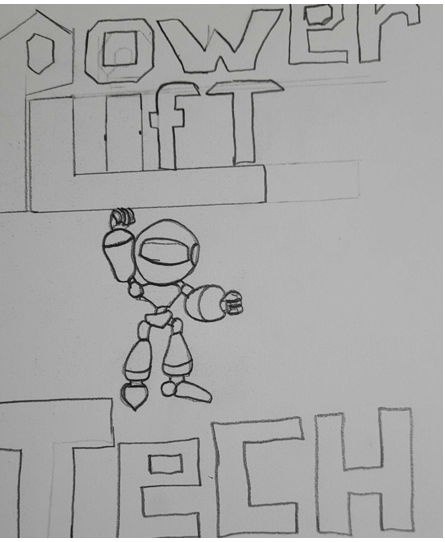 Power
LifT
TecH